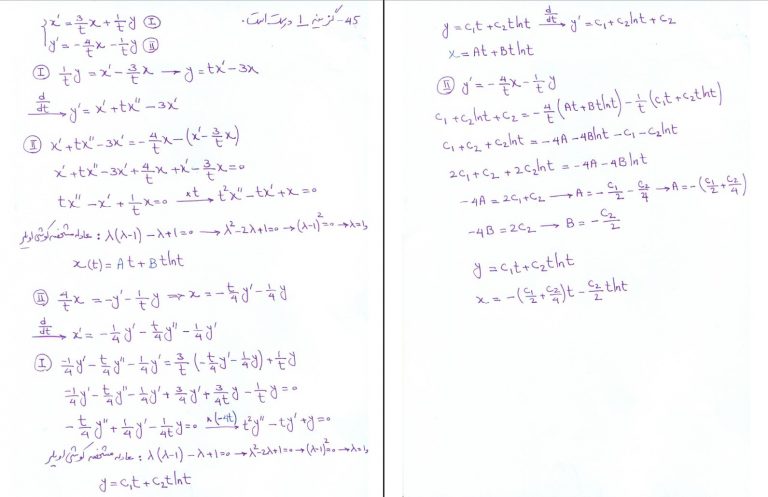 45- گزینه 1 درست است.
{ x' = 3/t x + 1/t y Ⓘ
y' = -4/t x - 1/t y Ⓘ︎Ⓘ
Ⓘ 1/t y = x' - 3/t x → y = tx' - 3x
d/dt → y' = x' + tx'' - 3x'
Ⅱ x' + tx'' - 3x' = -4/t x - (x' - 3/t x)
x' + tx'' - 3x' + 4/t x + x' - 3/t x = 0
tx'' - x' + 1/t x = 0 —×t→ t²x'' - tx' + x = 0
معادله مشخصه کوشی اویلر : λ(λ-1) - λ + 1 = 0 → λ² - 2λ + 1 = 0 → (λ-1)² = 0 → λ = 1,
x(t) = At + Bt lnt
Ⅱ 4/t x = -y' - 1/t y ⇒ x = -t/4 y' - 1/4 y
d/dt → x' = -1/4 y' - t/4 y'' - 1/4 y'
Ⓘ -1/4 y' - t/4 y'' - 1/4 y' = 3/t (-t/4 y' - 1/4 y) + 1/t y
-1/4 y' - t/4 y'' - 1/4 y' + 3/4 y' + 3/4t y - 1/t y = 0
-t/4 y'' + 1/4 y' - 1/4t y = 0 —×(-4t)→ t²y'' - ty' + y = 0
معادله مشخصه کوشی اویلر : λ(λ-1) - λ + 1 = 0 → λ² - 2λ + 1 = 0 → (λ-1)² = 0 → λ = 1,
y = c₁t + c₂t lnt
y = c₁t + c₂t lnt —d/dt→ y' = c₁ + c₂lnt + c₂
x = At + Bt lnt
Ⅱ y' = -4/t x - 1/t y
c₁ + c₂lnt + c₂ = -4/t (At + Bt lnt) - 1/t (c₁t + c₂t lnt)
c₁ + c₂ + c₂lnt = -4A - 4B lnt - c₁ - c₂lnt
2c₁ + c₂ + 2c₂lnt = -4A - 4B lnt
-4A = 2c₁ + c₂ → A = -c₁/2 - c₂/4 → A = -(c₁/2 + c₂/4)
-4B = 2c₂ → B = -c₂/2
y = c₁t + c₂t lnt
x = -(c₁/2 + c₂/4)t - c₂/2 t lnt